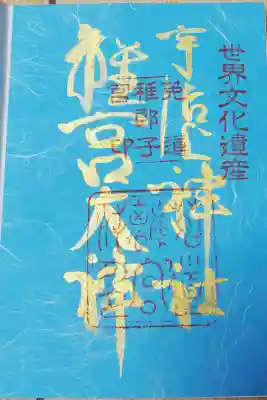 世界文化遺産
宇治上神社
菟道
稚郎子
宮印
離宮大神